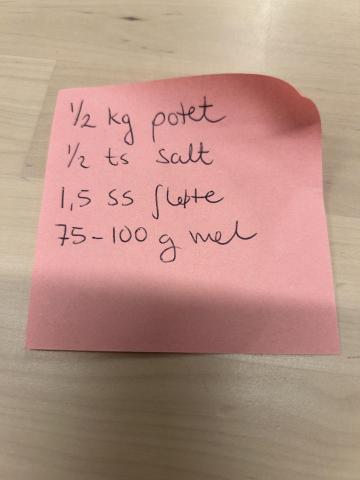 1/2 kg potet
1/2 ts salt
1,5 ss fløte
75-100 g mel